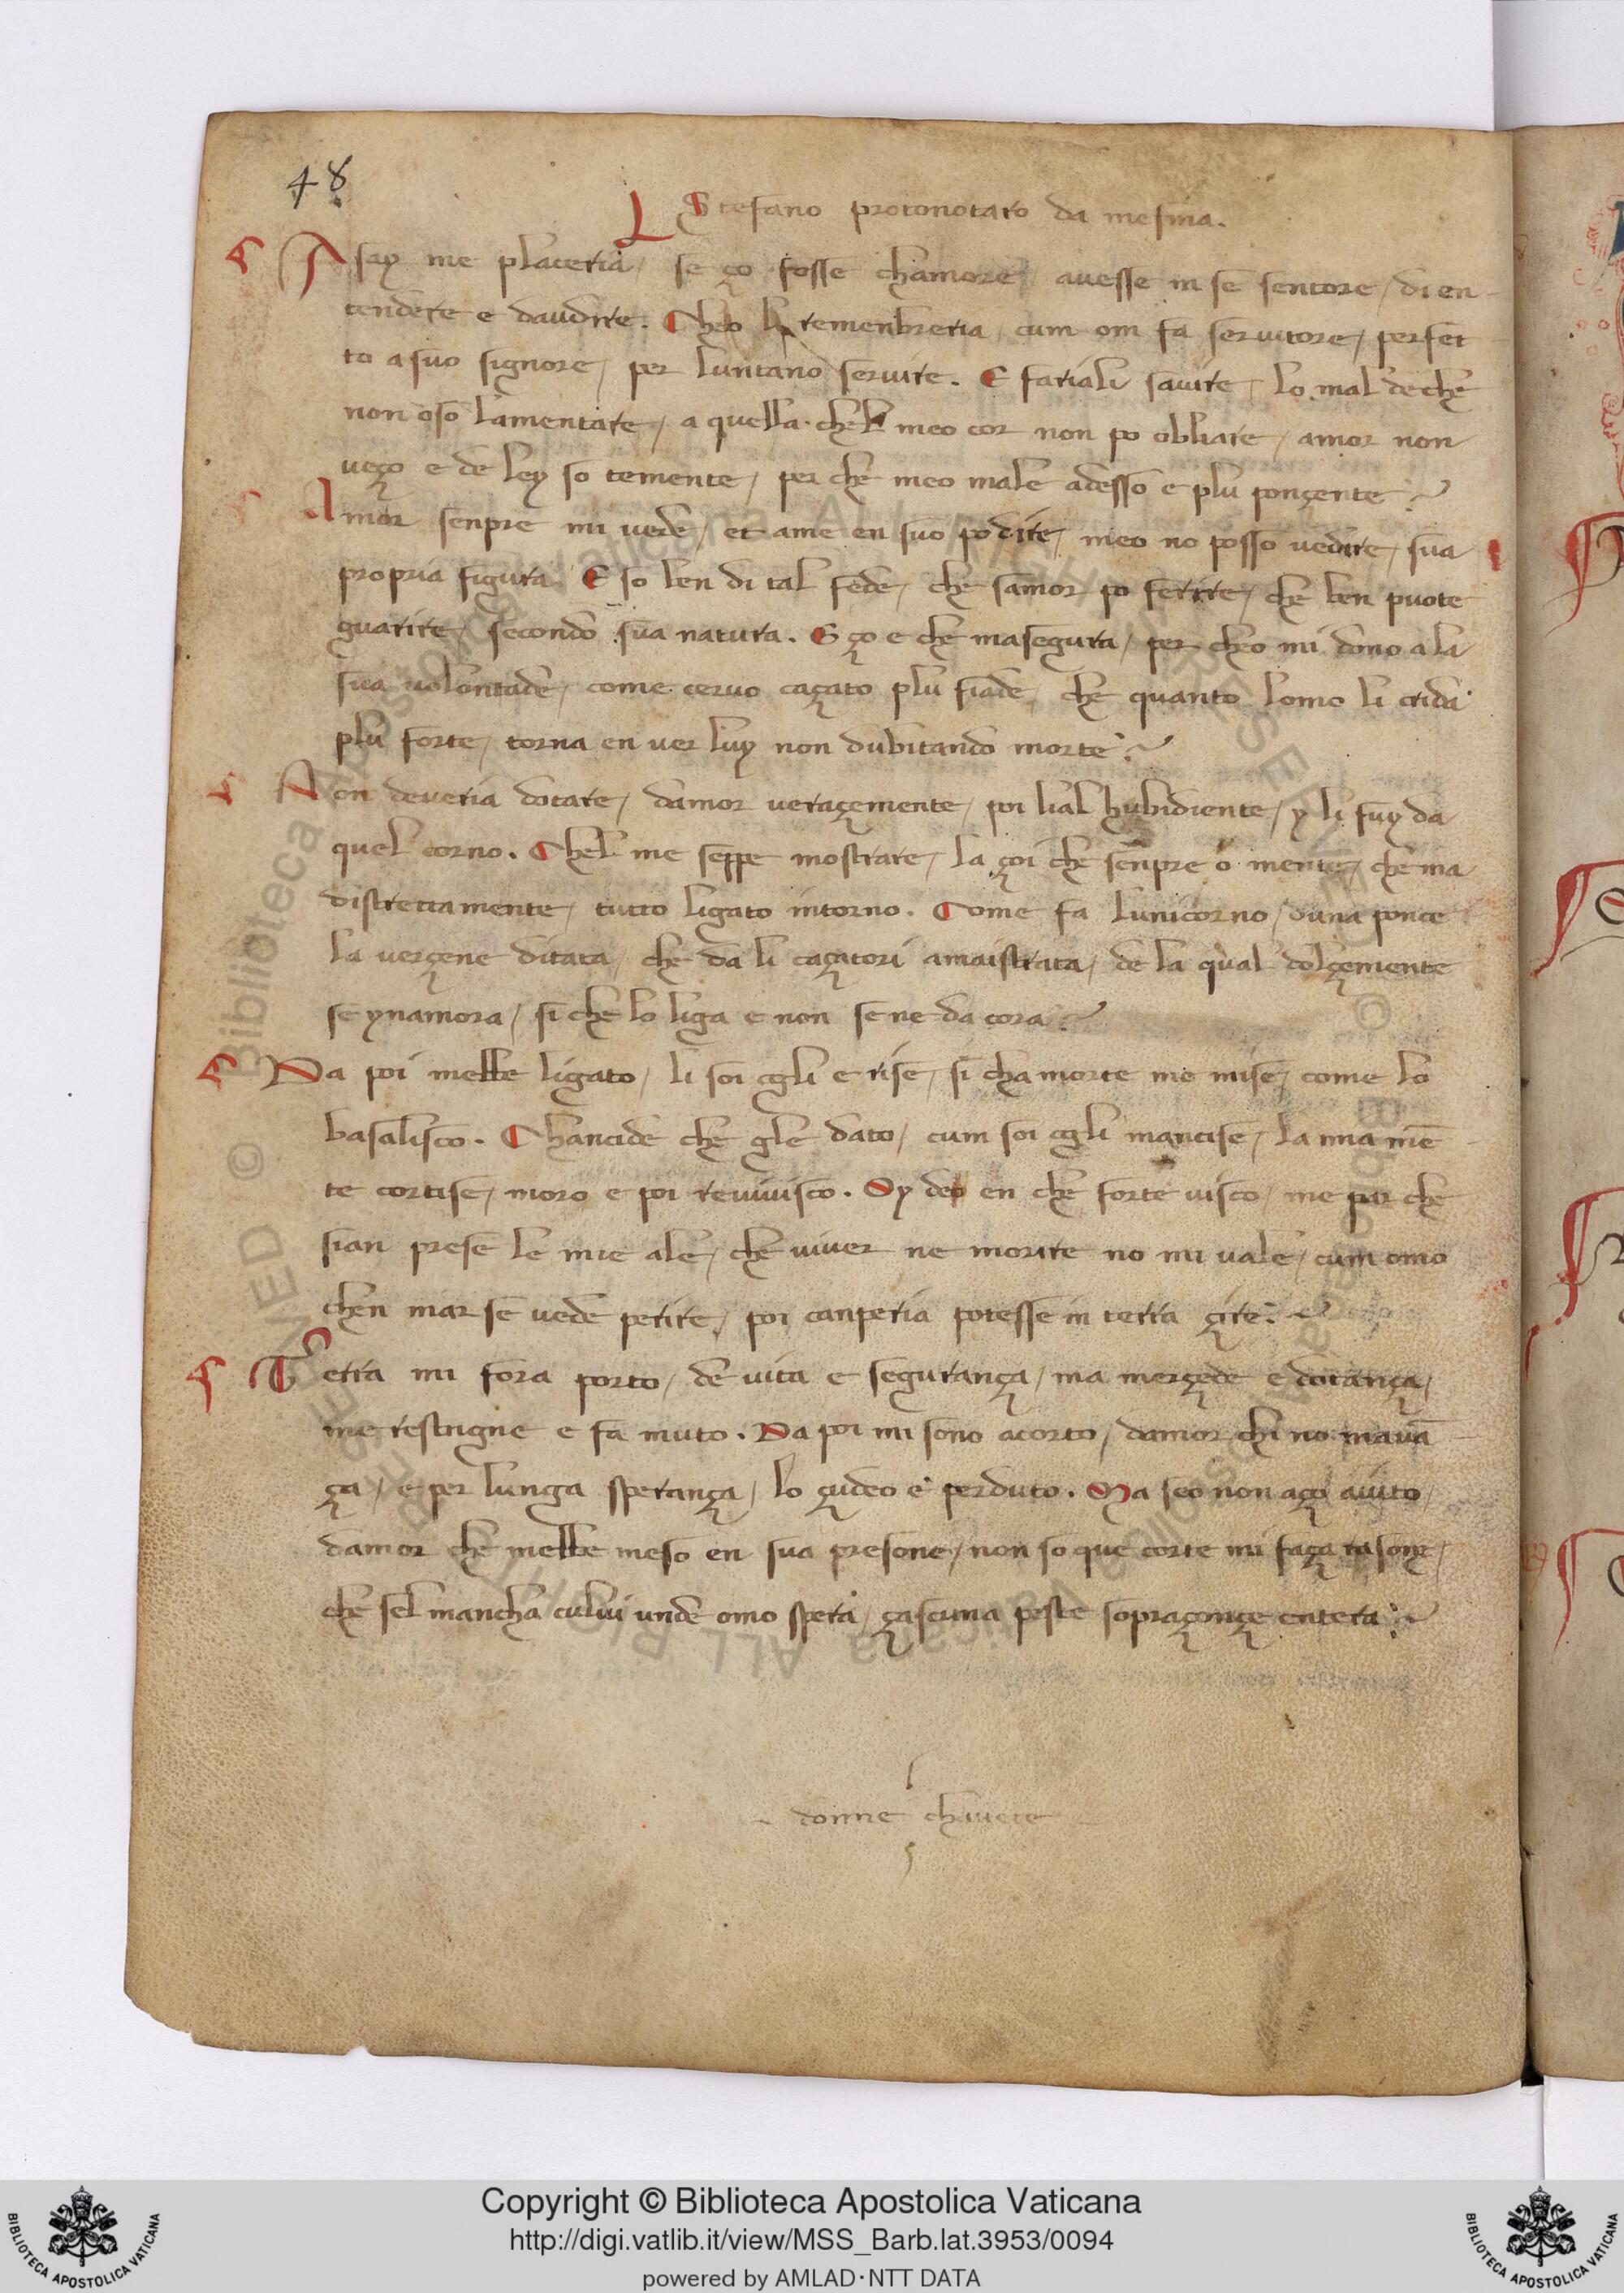 48
Stefano protonotaro da mesina.
Asay me placeria / se ço fosse chamore / auesse in se sentore / di en-
tendere e daudire. Cheo li remenbreria / cum om fa seruitore / perfet
to a suo signore / per luntano seruire. E fariali sauire / lo mal de che
non oso lamentare / a quella chel meo cor non po obliare / amor non
ueço e de ley so temente / per che meo male adesso e plu ponçente
Amor senpre mi uede / et a me en suo podire / meo no posso uedire / sua
propria figura. E so ben di tal fede / che samor po ferire / che ben puote
guarire / secondo sua natura. E ço e che masegura / per cheo mi dono a la
sua uolontade / come ceruo caçato plu fiade / che quanto lomo li crida
plu forte / torna en uer luy non dubitando morte
Non deueria dotare / damor ueraçemente / poi lial hubidiente / y li fuy da
quel corno. Chel me seppe mostrare / la çoi che senpre o mente / che ma
distrettamente / tutto ligato intorno. Come fa lunicorno / duna ponce
la uerçene ditata / che da li caçatori amaistrata / de la qual dolçemente
se ynamora / si che lo liga e non se ne da cora
Da poi mebbe ligato / li soi ogli e rise / si cha morte me mise / come lo
basalisco. Chancide che gle dato / cum soi ogli mancise / la mia mē-
te cortise / moro e poi reuiuisco. Oy deo en che forte uisco / me par che
sian prese le mie ale / che uiuer ne morire no mi uale / cum omo
chen mar se uede perire / poi canperia potesse in terra çire
Terra mi fora porto / de uita e segurança / ma merçede e dotança /
me restrigne e fa muto. Da poi mi sono acorto / damor chi no mauā-
ça / e per lunga sperança / lo çudeo e perduto. Ma seo non aço auuto /
damor che mebbe meso en sua presone / non so que corte mi faça rasone /
che sel mancha culuui unde omo spera / çascuna peste sopraçonçe entera
donne chauete
Copyright © Biblioteca Apostolica Vaticana
http://digi.vatlib.it/view/MSS_Barb.lat.3953/0094
powered by AMLAD·NTT DATA
BIBLIOTECA APOSTOLICA VATICANA
BIBLIOTECA APOSTOLICA VATICANA